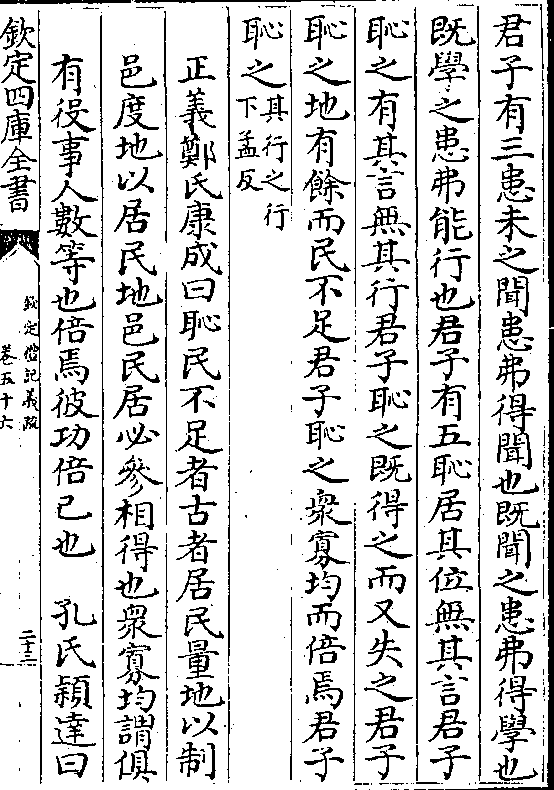 君子有三患未之聞患弗得聞也既聞之患弗得學也
既學之患弗能行也君子有五恥居其位無其言君子
恥之有其言無其行君子恥之既得之而又失之君子
恥之地有餘而民不足君子恥之衆寡均而倍焉君子
恥之其行之行
下孟反
正義鄭氏康成曰恥民不足者古者居民量地以制
邑度地以居民地邑民居必參相得也衆寡均謂俱
有役事人數等也倍焉彼功倍已也 孔氏穎達曰
欽定四庫全書
欽定禮記義疏
卷五十六
二十三